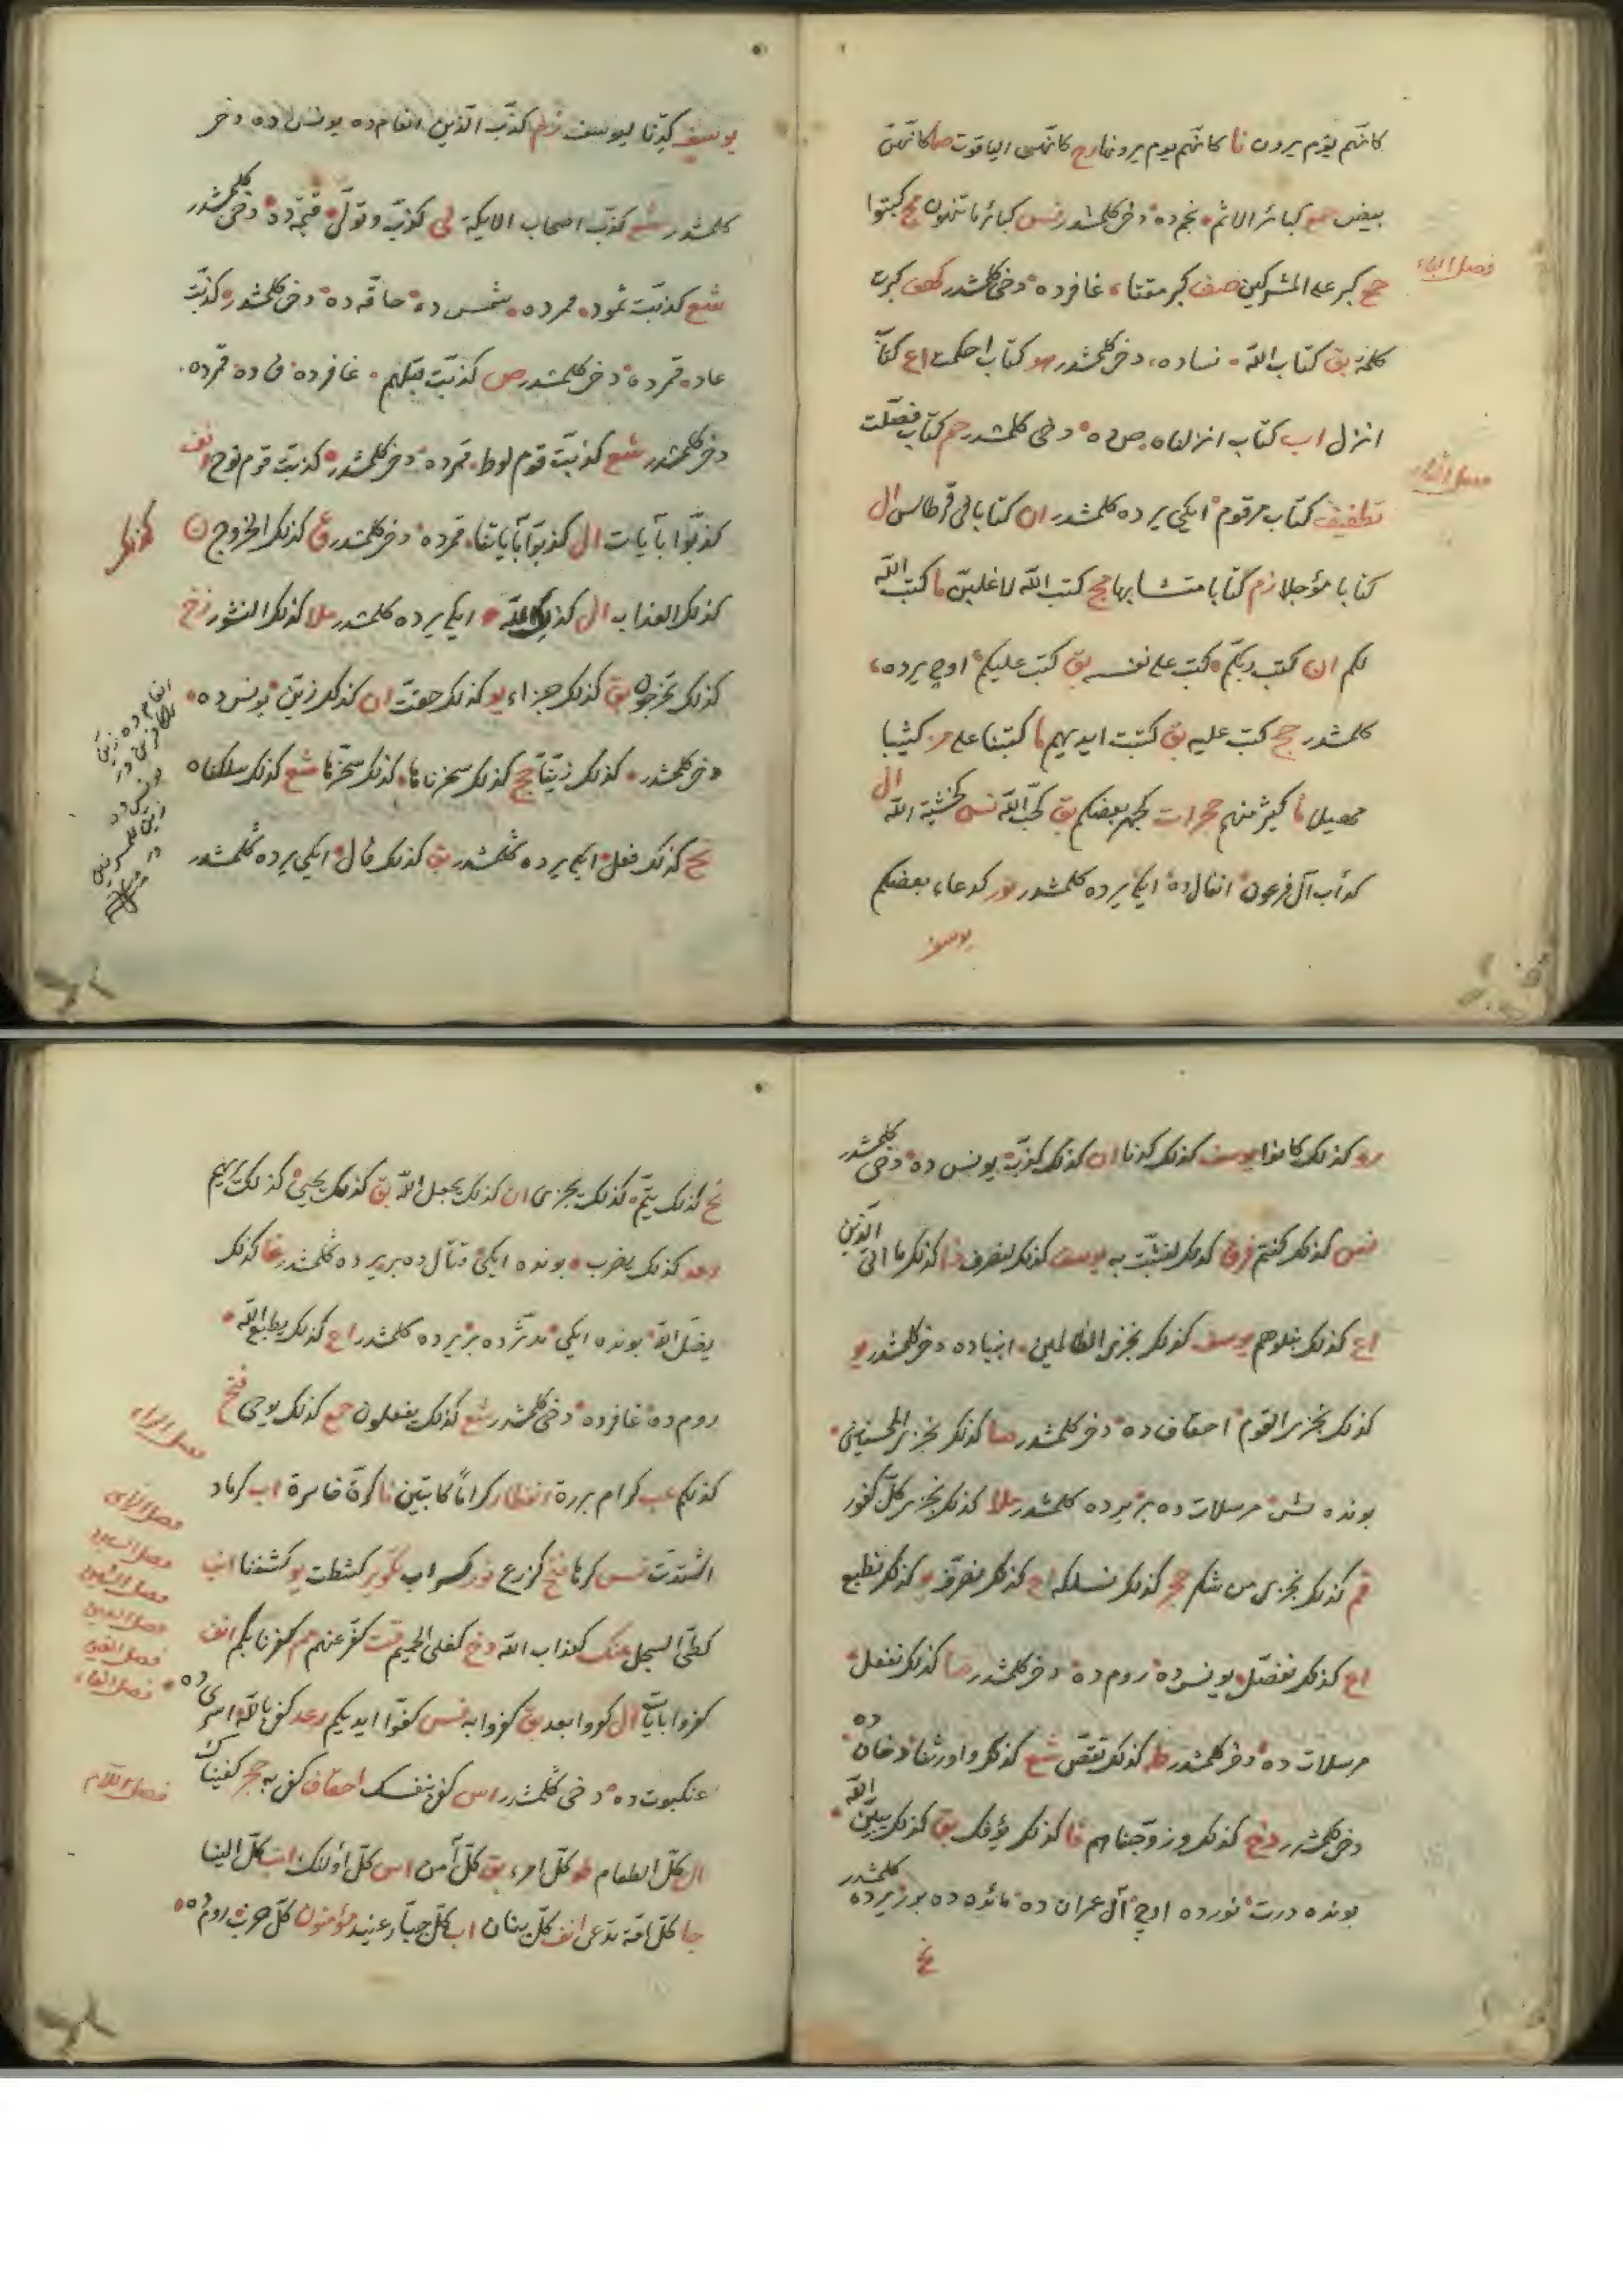 كانهم يوم يرون نا كانهم يوم يرونها رح كانهن الياقوت صا كانهن
بيض جمع كبائر الاثم نجم ده دخى كلمشدر نس كبائر ما تنهون مج كبتوا
فصل الباء
جمع كبر على المشركين صف كبر مقتا غافر ده دخى كلمشدر كهف كبرت
كلمة بق كتاب الله نساده دخى كلمشدر هو كتاب احكمت اع كتاب
انزل اب كتاب انزلناه ص ده دخى كلمشدر حم كتاب فصلت
تطفيف كتاب مرقوم ايكى يرده كلمشدر ان كتابا فى قرطاس ال
كتابا مؤجلا زم كتابا متشابها مج كتب الله لاغلبن ما كتب الله
لكم ان كتب ربكم كتب على نفسه بق كتب عليكم اوچ يرده
كلمشدر حج كتب عليه بق كتبت ايديهم ما كتبنا على مز كثيبا
مهيلا ما كثير منهم حجرات كجهر بعضكم بق كحب الله نس كخشية الله ال
كدأب آل فرعون انفال ده ايكى يرده كلمشدر نور كدعاء بعضكم
يوسف
يوسف كدنا ليوسف زم كذب الذين انعام ده يونس ده دخى
كلمشدر شع كذب اصحاب الايكة لى كذب وتولى قيمه ده دخى كلمشدر
شع كذبت ثمود قمرده شمس ده حاقه ده دخى كلمشدر كذبت
عاد قمرده دخى كلمشدر ص كذبت قبلهم غافرده ق ده قمرده
دخى كلمشدر شع كذبت قوم لوط قمرده دخى كلمشدر كذبت قوم نوح انف
كذبوا بآيات ال كذبوا بآياتنا قمرده دخى كلمشدر ق كذلك الخروج ن
كذلك
كذلك العذاب ال كذلك الله ايكى يرده كلمشدر ملا كذلك النشور زخ
كذلك تخرجون بق كذلك جزاء يو كذلك حقت ان كذلك زين يونس ده
دخى كلمشدر كذلك زينا حج كذلك سخرناها كذلك سخرها شع كذلك سلكناه
نح كذلك فعل ايكى يرده كلمشدر بق كذلك قال ايكى يرده كلمشدر
رو كذلك كانوا يوسف كذلك كدنا ان كذلك كذب يونس ده دخى كلمشدر
نس كذلك كنتم فرق كذلك لنثبت به يوسف كذلك لنصرف ذا كذلك ما اتى الذين
اع كذلك نبلوهم يوسف كذلك نجزى الظالمين انبياده دخى كلمشدر يو
كذلك نجزى القوم احقاف ده دخى كلمشدر صا كذلك نجزى المحسنين
بونده بش مرسلات ده بر يرده كلمشدر ملا كذلك نجزى كل كفور
قم كذلك نجزى من شكر حجر كذلك نسلكه اع كذلك نصرف يو كذلك نطبع
اع كذلك نفصل يونس ده روم ده دخى كلمشدر صا كذلك نفعل
مرسلات ده دخى كلمشدر طه كذلك نقص شع كذلك واورثنا دخان ده
دخى كلمشدر دخ كذلك وزوجناهم غا كذلك يؤفك بق كذلك يبين الله
بونده درت نورده اوچ آل عمران ده مائده ده بر يرده كلمشدر
نح
نح كذلك يتم كذلك يجزى ان كذلك يجعل الله بق كذلك يحيى كذلك يريهم
رعد كذلك يضرب بونده ايكى قتال ده بر يرده كلمشدر غا كذلك
يضل الله بونده ايكى مدثرده بر يرده كلمشدر اع كذلك يطبع الله
روم ده غافرده دخى كلمشدر شع كذلك يفعلون جمع كذلك يوحى فتح
فصل الراء
كذلكم عب كرام بررة انفطار كراما كاتبين نا كرة خاسرة اب كرماد
فصل الزاى
اشتدت نس كرها فتح كزرع نور كسراب تكوير كشطت يو كشفنا انب
فصل السين
فصل الشين
كطى السجل عنك كعذاب الله دخ كغلى الحميم قت كفر عنهم مم كفرنا بكم انف
فصل العين
فصل الغين
فصل الفاء
كفروا بآيات ال كفروا بعد بق كفروا به نس كفوا ايديكم رعد كفى بالله اسرى ده
عنكبوت ده دخى كلمشدر اس كفى بنفسك احقاف كفى به حجر كفيناك
فصل اللام
ال كل الطعام طو كل امرء بق كل آمن اس كل اولئك انب كل الينا
جا كل امة تدعى انف كل بنان اب كل جبار عنيد مؤمنون كل حزب روم ده